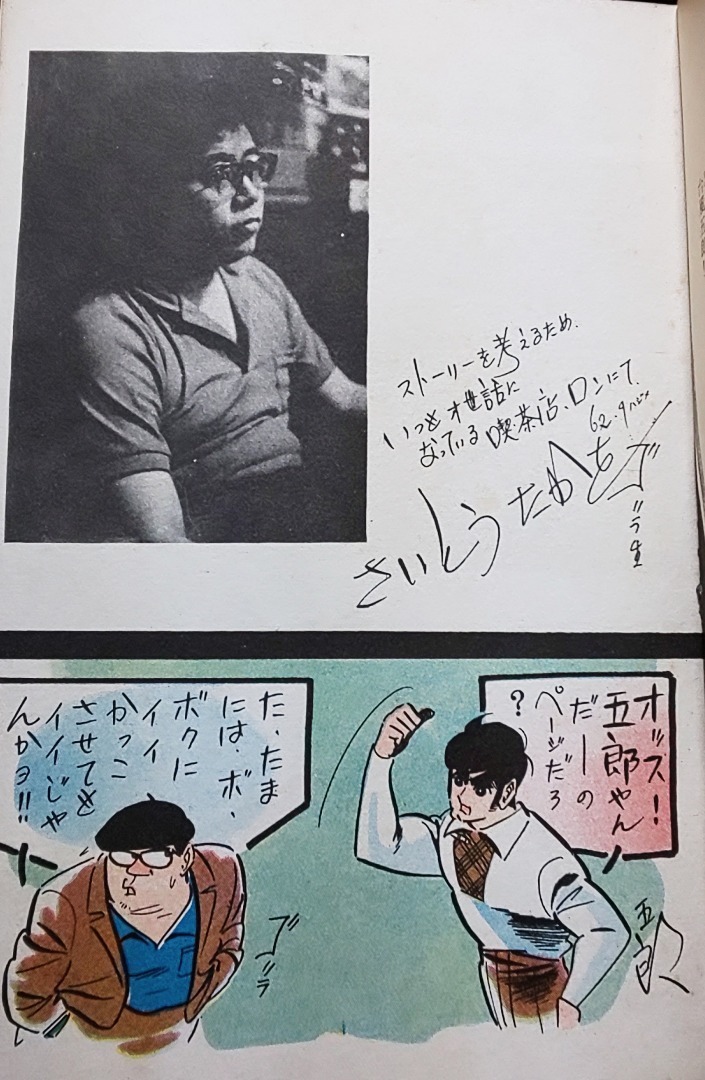 ストーリーを考えるため.
いつもオ世話に
なっている喫茶店、ロンにて
62.9
さいとうたかを
ゴリラ生
オッス!
五郎やん
だーの
ページだろ
?
た、たま
には.ボ、
ボクに
イイ
かっこ
させても
イイじゃ
んかョ!!
五郎
ゴリラ